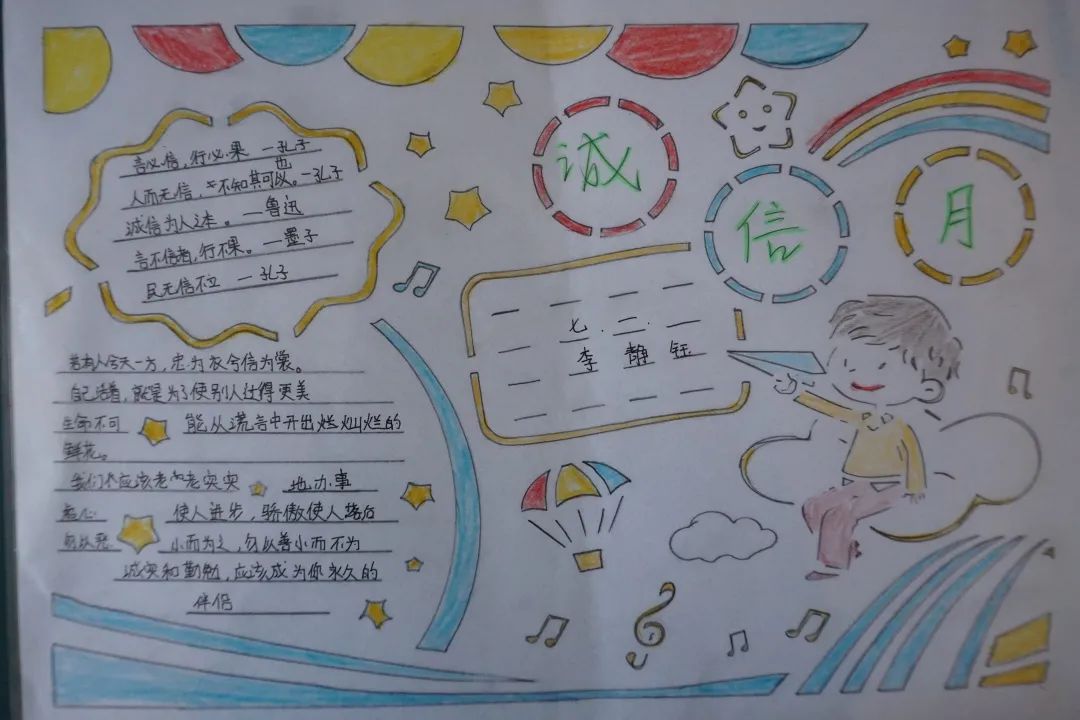 诚信月
言必信,行必果 —孔子
人而无信,不知其可以也。—孔子
诚信为人之本。—鲁迅
言不信者,行不果。—墨子
民无信不立 —孔子
七.二.
李静钰
若有人兮天一方,忠为衣兮信为裳。
自己活着,就是为了使别人过得更美
生命不可 能从谎言中开出灿烂的
鲜花。
我们应该老老实实 地办事
虚心 使人进步,骄傲使人落后
勿以恶 小而为之,勿以善小而不为
诚实和勤勉,应该成为你永久的
伴侣